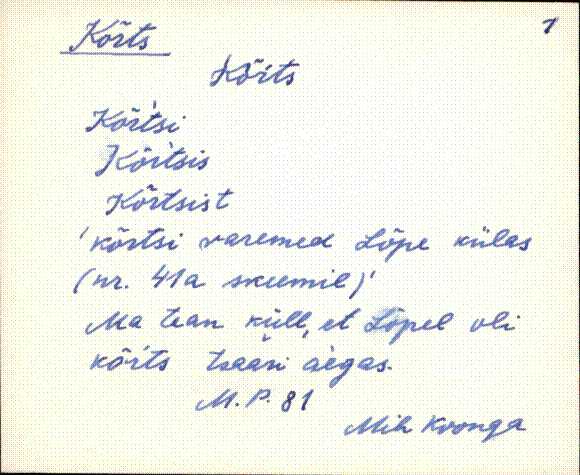 1
Kõrts
Kõŕts
Kõŕtsi
Kõŕtsis
Kõrtsist
'kõrtsi varemed Lõpe külas
(nr. 41a skeemil)'
Ma tean küll, et Lõpel oli
kõŕts tsaari aegas.
M. P. 81
Mih Koonga